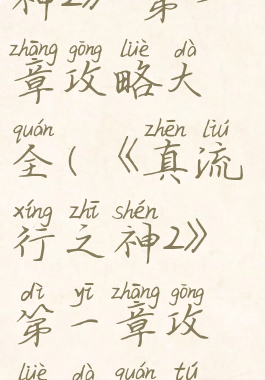 神2》 第一
zhāng gōng lüè dà
章攻略大
quán zhēn liú
全(《真流
xíng zhī shén
行之神2》
dì yī zhāng gōng
第一章攻
lüè dà quán tú